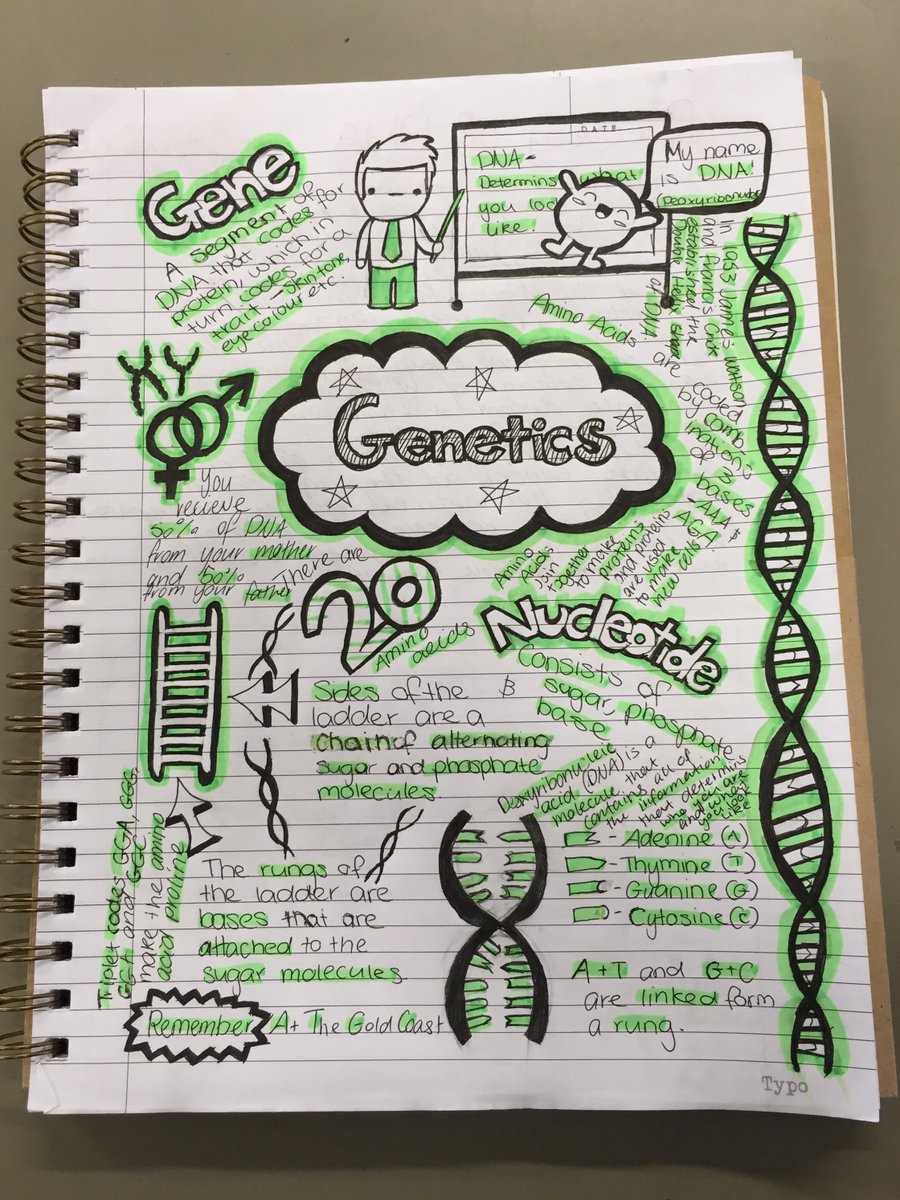 DATE
DNA-
Determins what
you loo
like.
My name
is DNA!
Gene
A segment of
DNA that codes for
protein, which in
turn codes for a
trait - Skin tone,
eyecolour etc.
In 1953 James Watson
and Francis Crick
established the
Double Helix shape
of DNA.
Amino Acids
are
coded
by com
of 3
bases
AAA
AGA
Genetics
You
recieve
50% of DNA
from your mother
and 50%
from your father
There are
20
Amino
acids
Amino
Acids
Join
together
to make
proteins
and proteins
are used
to make
new cells
Nucleotide
Consists of
sugar, phosphate
base
Sides of the
ladder are a
chain of alternating
sugar and phosphate
molecules.
Deoxyribonucleic
acid (DNA) is a
molecule that
contains all of
the information
that determins
who you are
and what
you look
like
Adenine (A)
- Thymine (T)
- Guanine (G)
- Cytosine (C)
The rungs of
the ladder are
bases that are
attached to the
sugar molecules.
Triplet codes GCA, GCG,
GCT and GCC
make the amino
acid
A+T and G+C
are linked form
a rung.
Remember A+ The Gold Coast
Typo